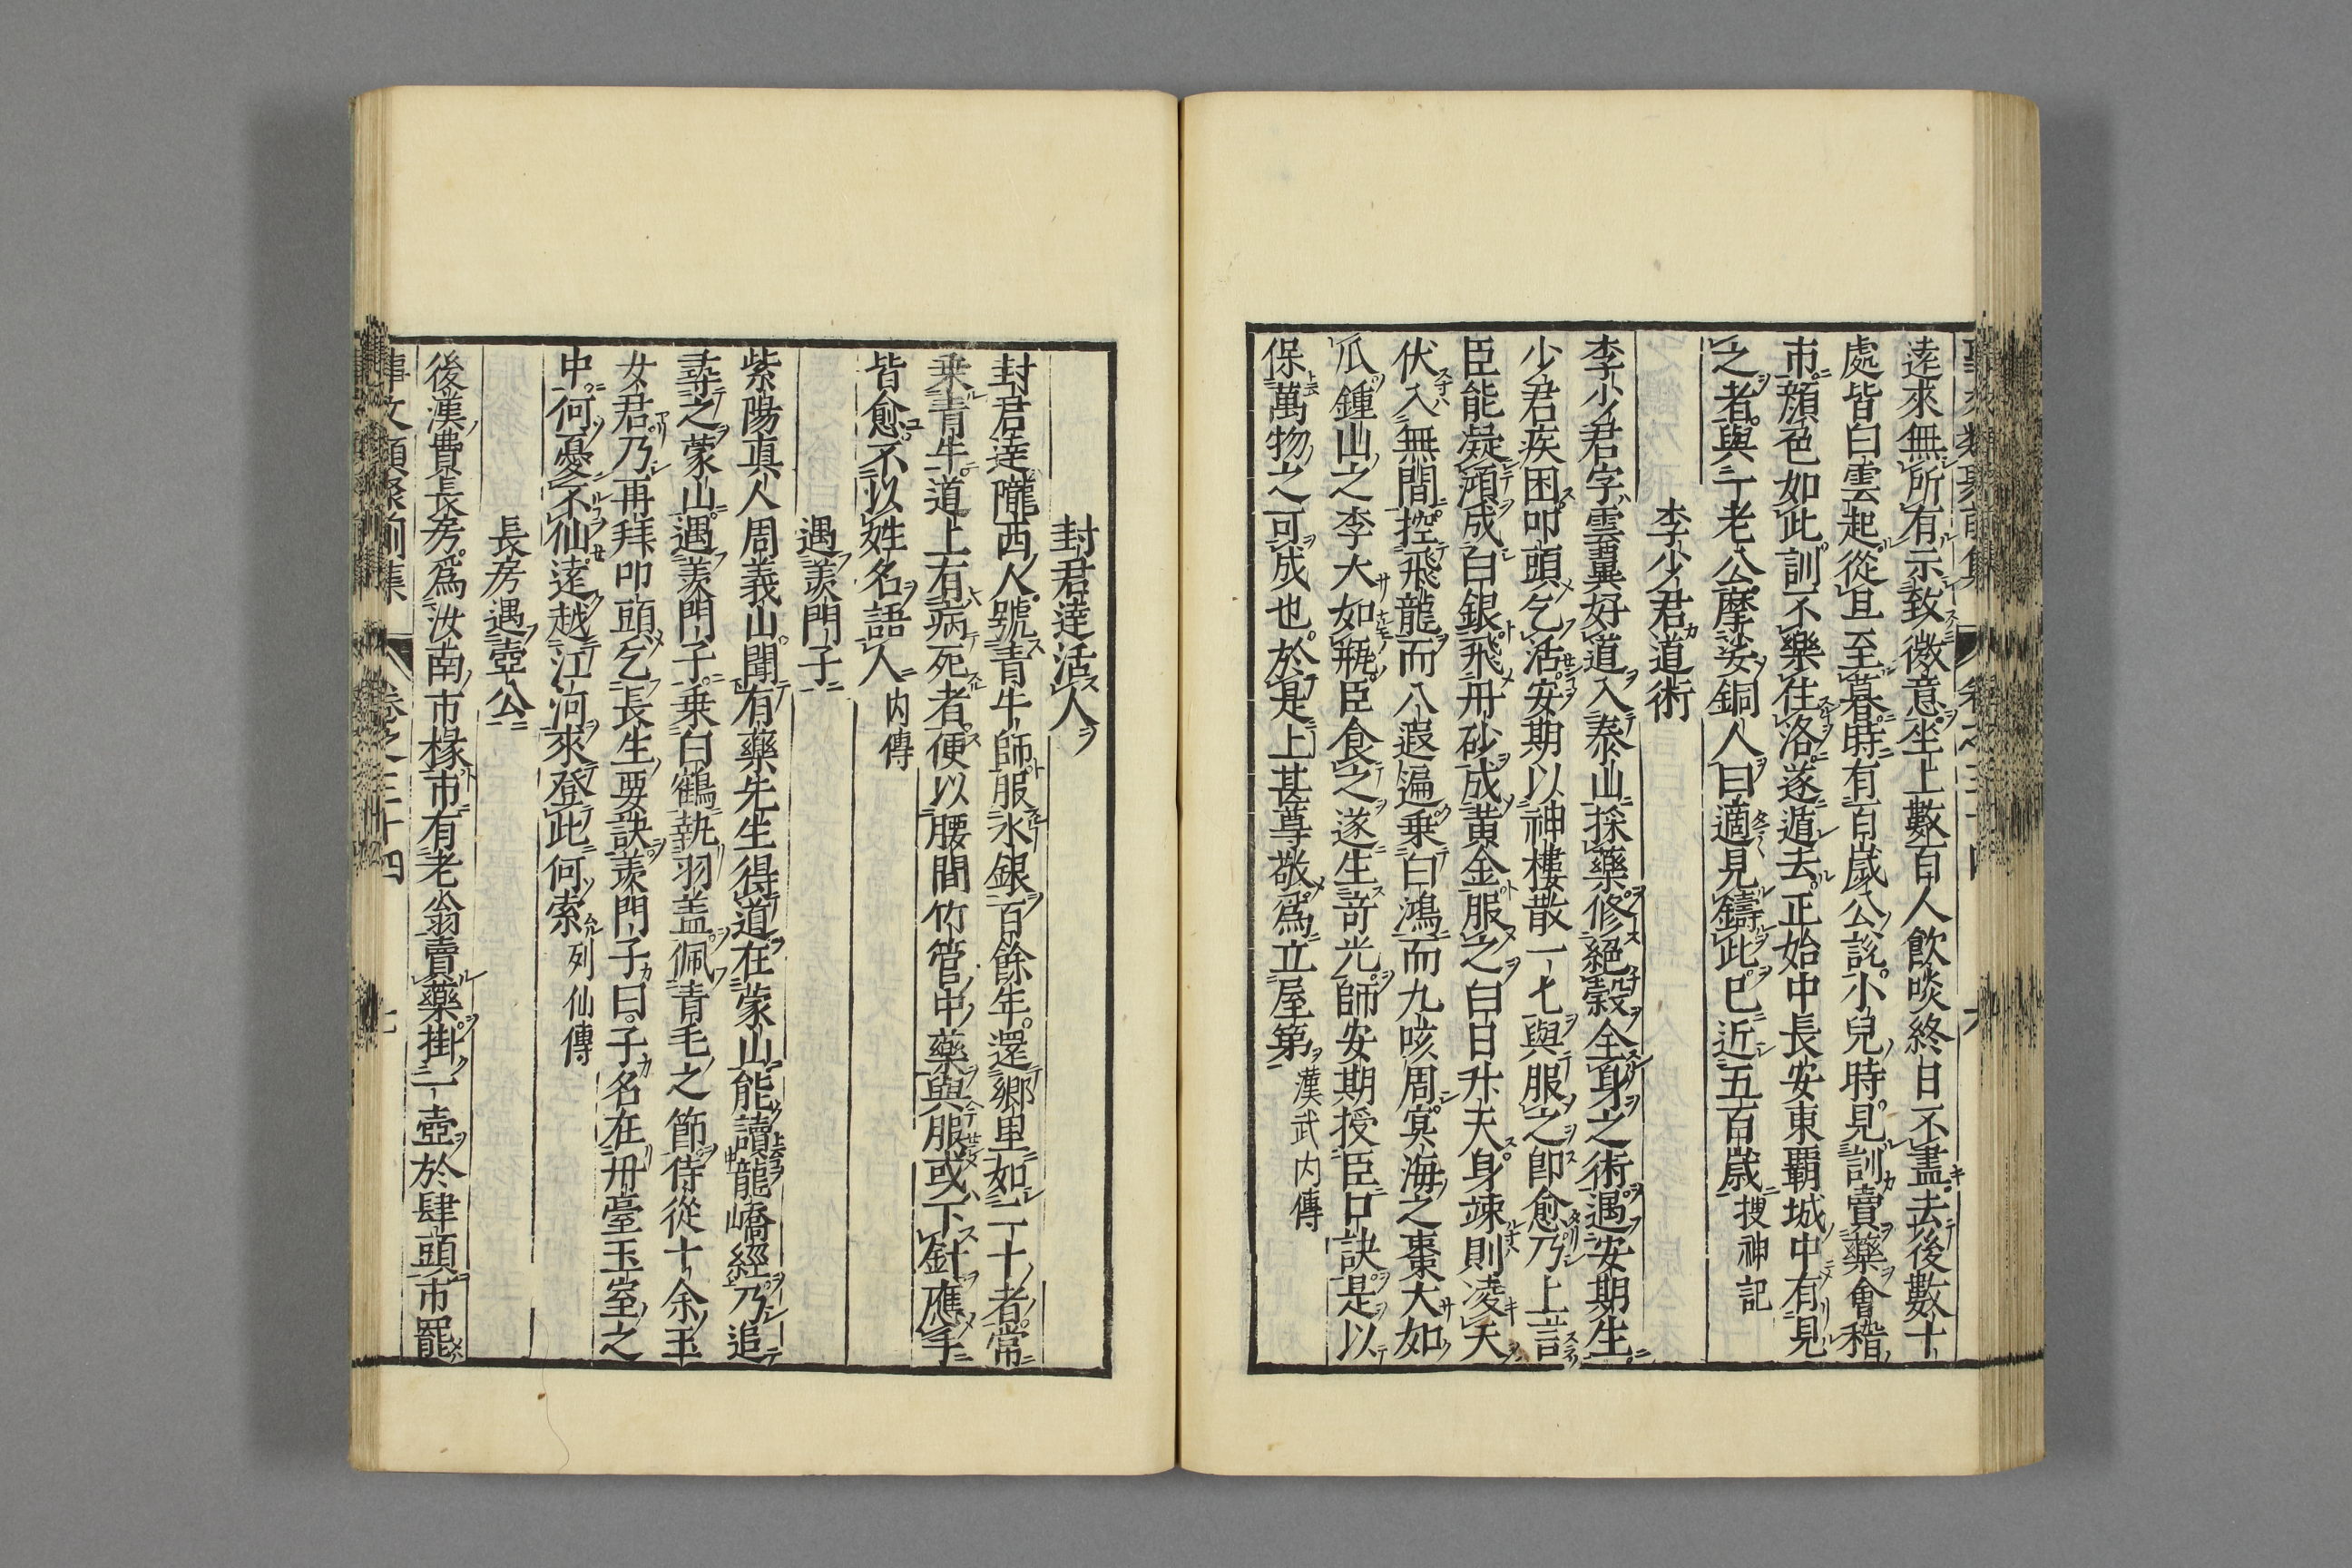 逵來無所有示致微意坐上數百人飲啖終日不盡去後數十
處皆白雲起從旦至暮時有百歲公說小兒時見訓賣藥會稽
市顏色如此訓不樂住洛遂遁去正始中長安東覇城中有見
之者與一老公摩挲銅人曰適見鑄此已近五百歳 搜神記
李少君道術
李少君字雲翼好道入泰山採藥修絕穀全身之術遇安期生
少君疾困叩頭乞活安期以神樓散一七與服之即愈乃上言
臣能凝澒成白銀飛丹砂成黃金服之白日升天身竦則凌天
伏入無間控飛龍而八遐遍乗白鴻而九咳周冥海之棗大如
瓜鍾山之李大如瓶臣食之遂生竒光師安期授臣口訣是以
保萬物之可成也於是上甚尊敬爲立屋第 漢武内傳
封君逹活人
封君逹隴西人號青牛師服水銀百餘年還郷里如二十者常
乗青牛道上有病死者便以腰間竹管中藥與服或下針應手
皆愈不以姓名語人 内傳
遇羨門子
紫陽真人周義山聞有藥先生得道在蒙山能讀龍嶠經乃追
尋之蒙山遇羨門子乗白鶴執羽盖佩青毛之節侍從十余玉
女君乃再拜叩頭乞長生要訣羨門子曰子名在丹臺玉室之
中何憂不仙逺越江河來登此何索 列仙傳
長房遇壺公
後漢費長房爲汝南市椽市有老翁賣藥掛一壺於肆頭市罷
事文類聚前集 卷之三十四 七